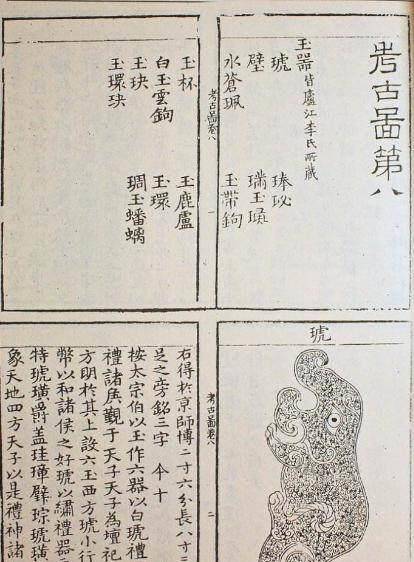 考古圖第八
玉器 皆廬江李氏所藏
琥 琫珌
璧 瑞玉
水蒼珮 玉帶鉤
考古圖卷八 一
玉杯 玉鹿盧
白玉雲鉤 玉環
玉玦 琱玉蟠螭
玉環玦
琥
考古圖卷八 二
右得於京師博二寸六分長八寸三
足之旁銘三字 今十
按太宗伯以玉作六器以白琥禮
禮諸侯覲于天子天子為壇祀
方明於其上設六玉西方琥小行
幣以和諸侯之好琥以繡禮器
特琥璜爵蓋珪璋璧琮琥璜
象天地四方天子以是禮神諸